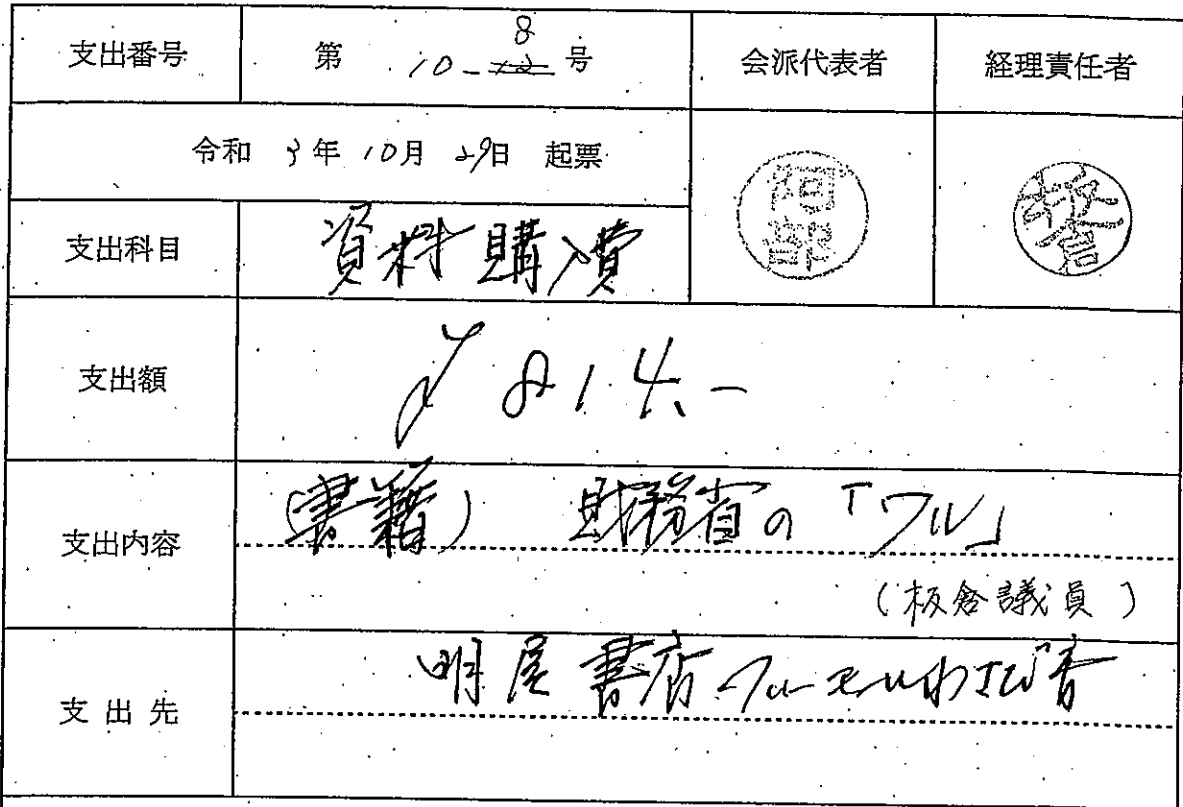 支出番号 第 10-8 号 会派代表者 経理責任者
令和 3年 10月 29日 起票 阿部 板倉
支出科目 資料購入費
支出額 ¥814.-
支出内容 (書籍) 財務省の「ワル」
(板倉議員)
支出先 明屋書店